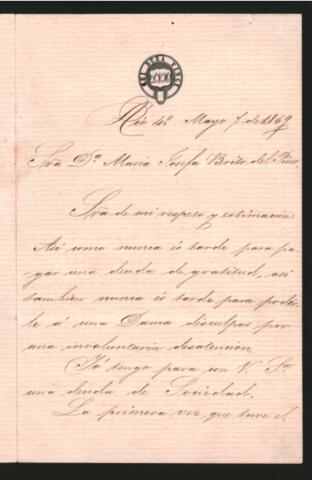 Rio 4º Mayo 7 de 1869
Sra Da. Maria Josefa Brito del Pino.
Sra de mi respeto y estimacion:
Asi como nunca és tarde para pa-
gar una deuda de gratitud, asi
tambien nunca és tarde para pedir-
le á una Dama disculpas por
una involuntaria desatencion.
Yo tengo para con V. Sra
una deuda de Sociedad.
La primera vez que tuve el